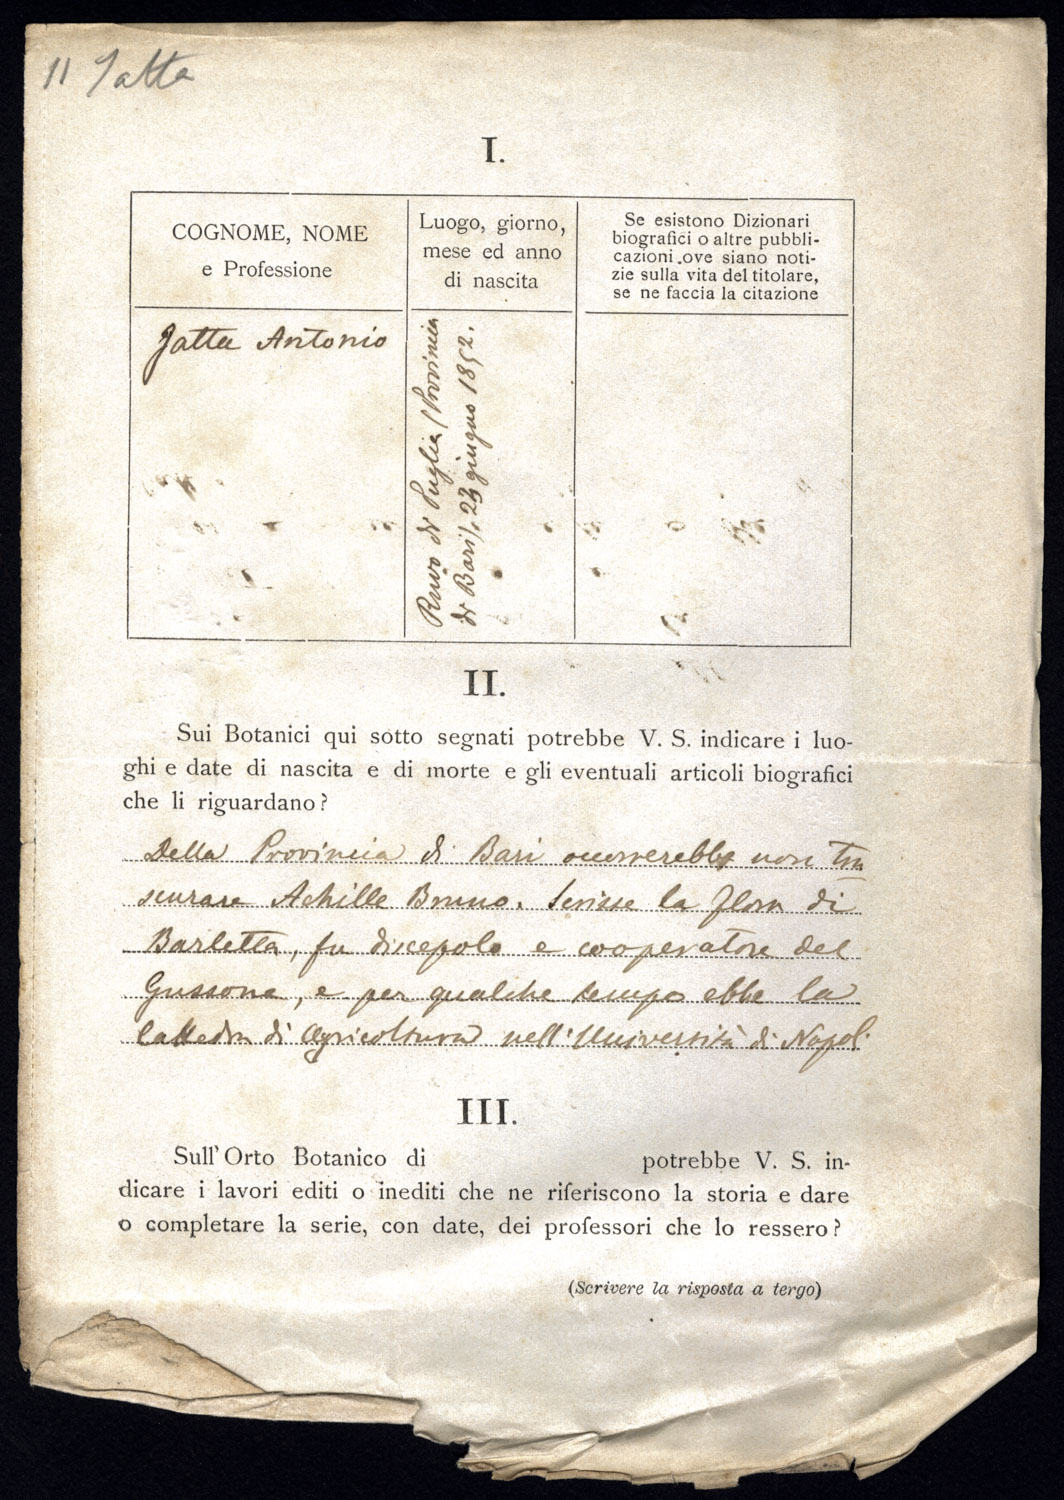 11 Jatta
I.
COGNOME, NOME
e Professione
Luogo, giorno,
mese ed anno
di nascita
Se esistono Dizionari
biografici o altre pubbli-
cazioni ove siano noti-
zie sulla vita del titolare,
se ne faccia la citazione
Jatta Antonio
Ruvo di Puglia (Provincia
di Bari). 23 giugno 1852.
II.
Sui Botanici qui sotto segnati potrebbe V. S. indicare i luo-
ghi e date di nascita e di morte e gli eventuali articoli biografici
che li riguardano?
Della Provincia di Bari occorrerebbe non tra
scurare Achille Bruno. Scrisse la flora di
Barletta, fu discepolo e cooperatore del
Gussone, e per qualche tempo ebbe la
Cattedra di Agricoltura nell'Università di Napoli
III.
Sull'Orto Botanico di potrebbe V. S. in-
dicare i lavori editi o inediti che ne riferiscono la storia e dare
o completare la serie, con date, dei professori che lo ressero?
(Scrivere la risposta a tergo)